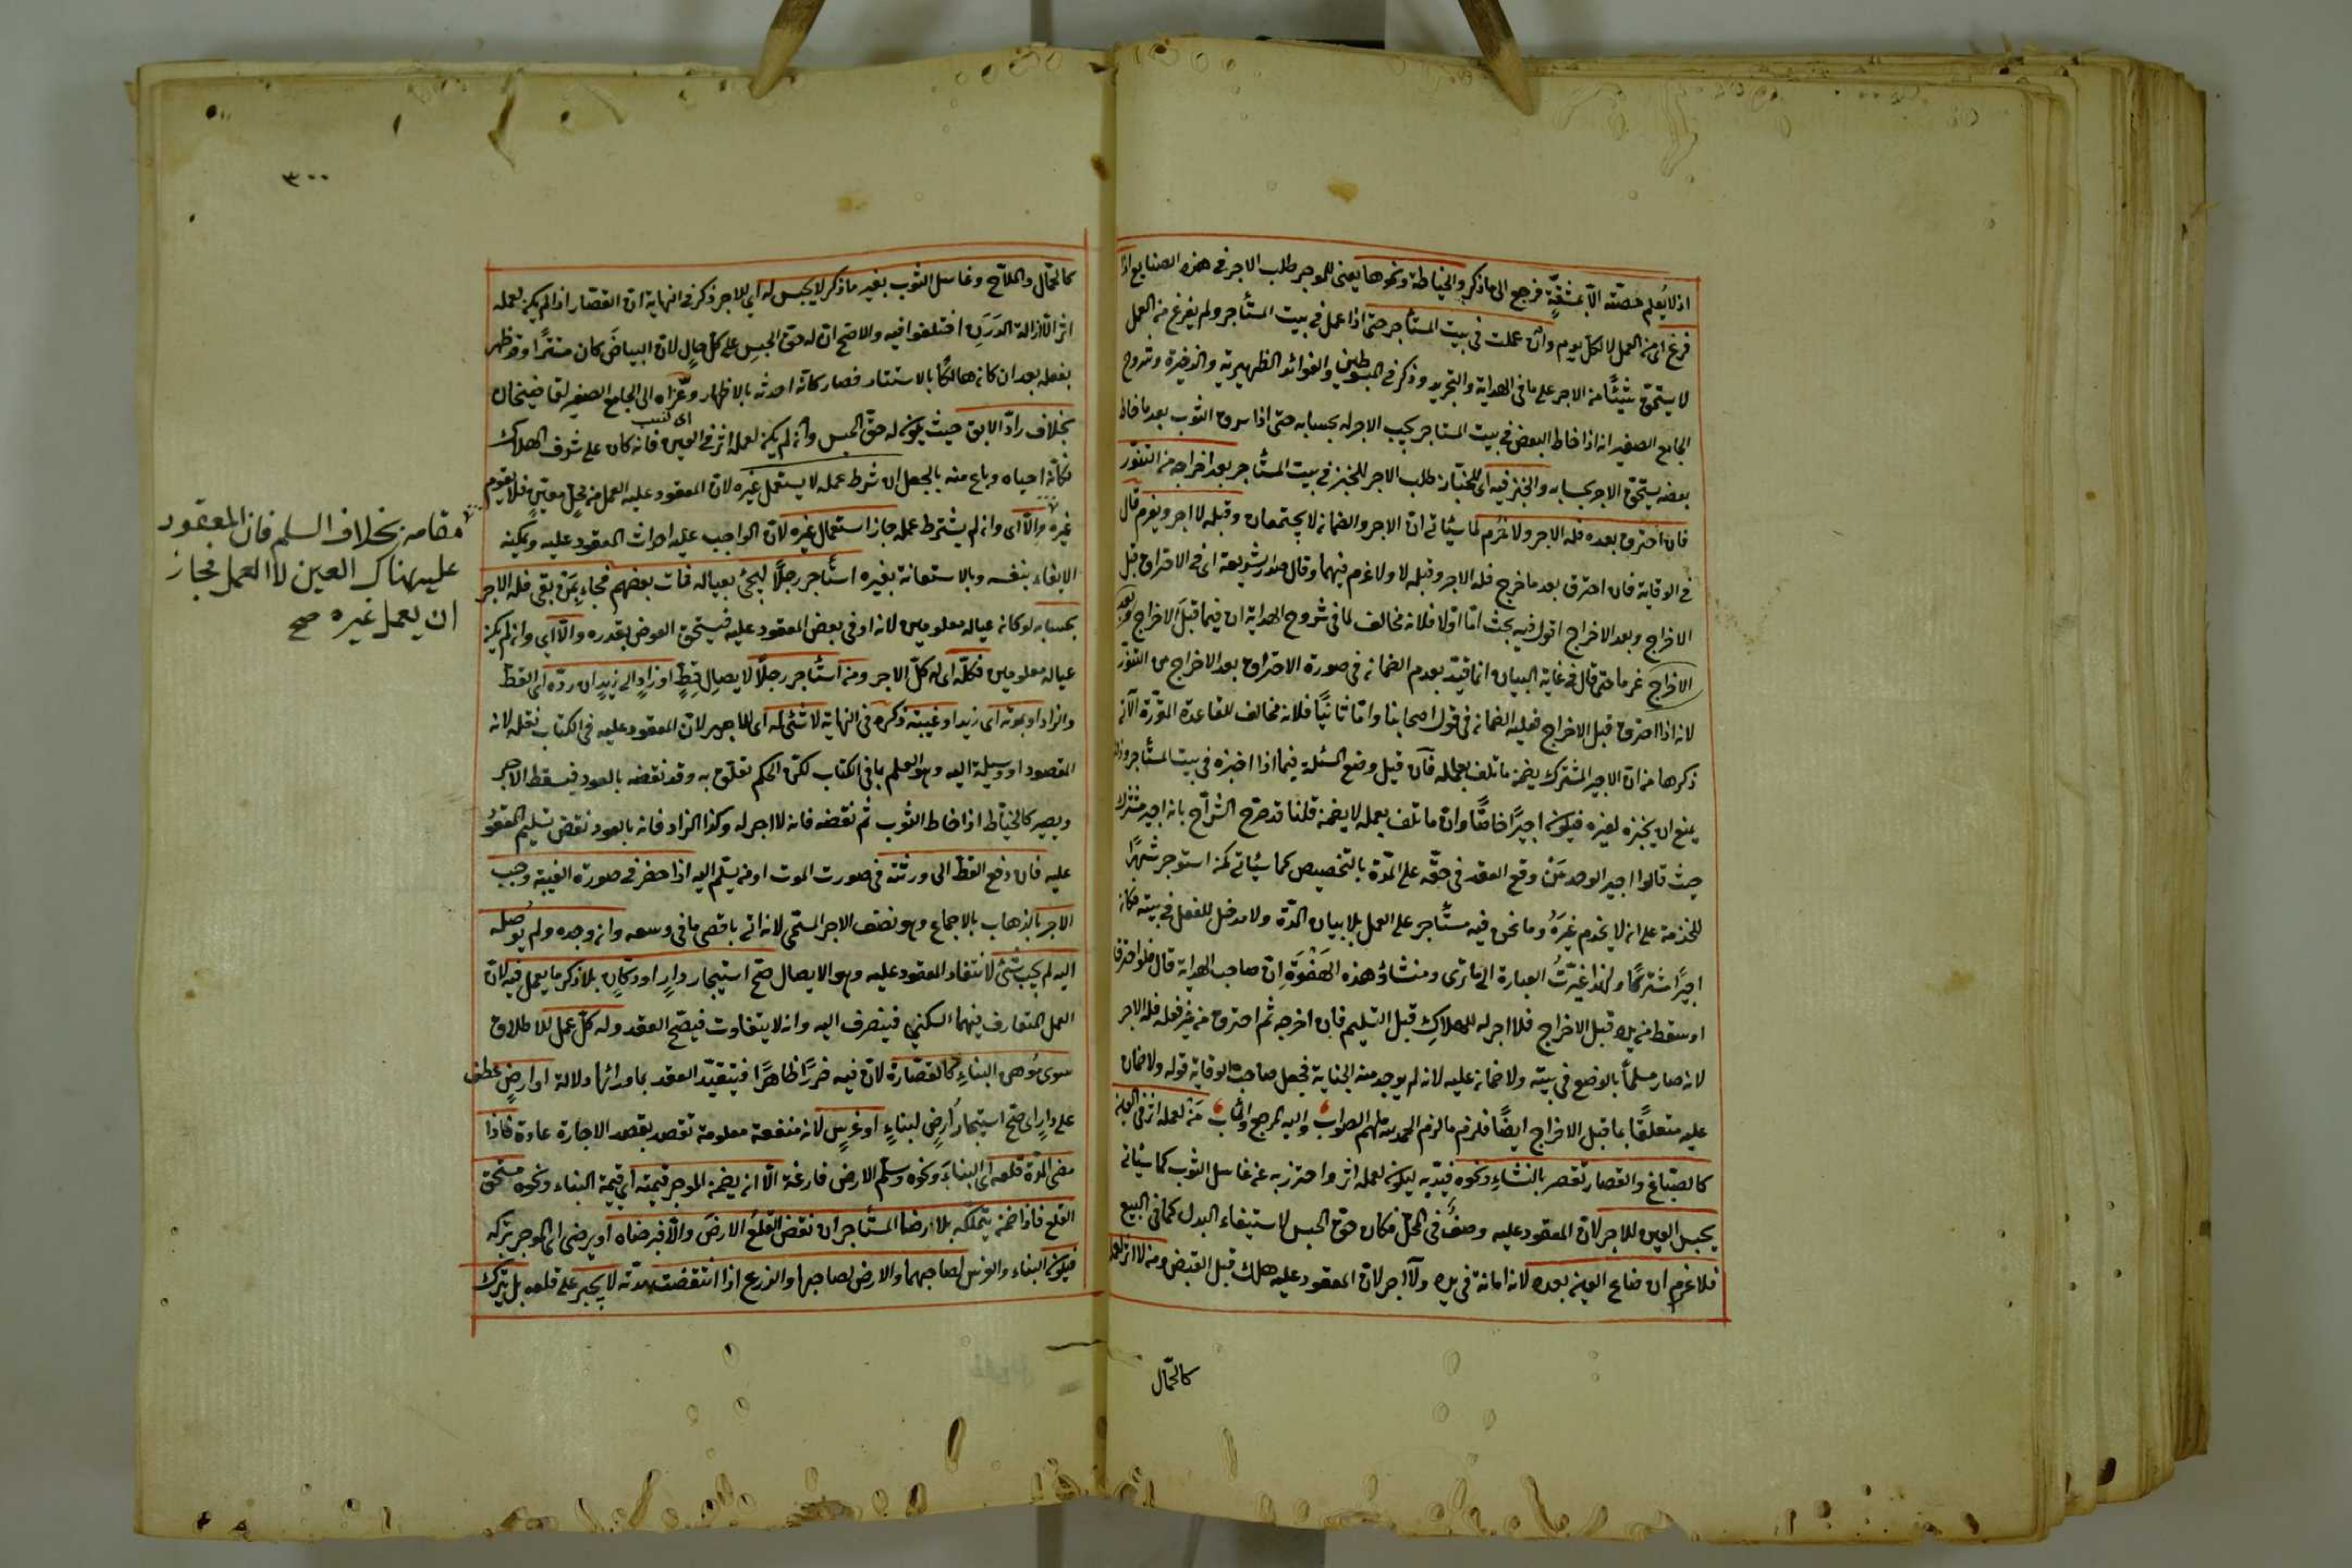 اذ لا يُعلم حصّته الّا بمشقّةٍ فرجع الى ما ذكر والخياطة ونحوها يعنى للموجر طلب الاجر فى هذه الصنايع اذا
فرغ اى من العمل لا لكل يوم وان عملت فى بيت المستأجر حتى اذا عمل فى بيت المستأجر ولم يفرغ من العمل
لا يستحق شيئًا من الاجر على ما فى الهداية والتجريد وذكر فى المبسوطين والفوائد الظهيرية والذخيرة وشروح
الجامع الصغير انه اذا خاط البعض فى بيت المستاجر يجب الاجر له بحسابه حتى اذا سرق الثوب بعد ما خاط
بعضه يستحق الاجر بحسابه والخبز فيه اى للخبّاز طلب الاجر للخبز فى بيت المستأجر بعد اخراجه من التنّور
فان احترق بعده فله الاجر ولا غرم لما سيأتى ان الاجر والضمان لا يجتمعان وقبله لا اجر ويغرم قال
فى الوقاية فان احترق بعد ما خرج فله الاجر وقبله لا ولا غرم فيهما وقال صدر الشريعة اى فى الاحتراق قبل
الاخراج وبعد الاخراج اقول فيه بحث امّا اولا فلانه مخالف لما فى شروح الهداية ان فيما قبل الاخراج وبعد
الاخراج غرما حتى قال فى غاية البيان انما قيّد بعدم الضمان فى صورة الاحتراق بعد الاخراج من التنّور
لانه اذا احترق قبل الاخراج فعليه الضمان فى قول اصحابنا وامّا ثانيًا فلانه مخالف للقاعدة المقررة الآتى
ذكرها من ان الاجير المشترك يضمن ما تلف بعمله فان قيل وضع المسئلة فيما اذا اخبزه فى بيت المستأجر وذا
يمنع ان يخبزه لغيره فيكون اجيرًا خاصًّا وان ما تلف بعمله لا يضمن قلنا قد صرح الشرّاح بانه اجير مشترك
حيث قالوا اجير الوحد مَن وقع العقد فى حقّه على المدّة بالتخصيص كما سيأتى كمن استوجر شهرًا
للخدمة على ان لا يخدم غيرَهُ وما نحن فيه مستأجر على العمل بلا بيان المدّة ولا مدخل للفعل فى بيته فكان
اجيرًا مشتركًا ولهذا غيّرتُ العبارة الى ما ترى ومنشاؤ هذه الهَفْوَةِ انّ صاحب الهداية قال فلو احترق
او سقط من يده قبل الاخراج فلا اجر له للهلاكِ قبل التسليم فان اخرجه ثم احترق من غير فعله فله الاجر
لانه صار مسلمًا بالوضع فى بيته ولا ضمان عليه لانه لم يوجد منه الجناية فجعل صاحب الوقاية قوله ولا ضمان
عليه متعلقًا بما قبل الاخراج ايضًا فلزم ما لزم الحمد لله ملهم الصواب واليه المرجع والمآب مَن لعمله اثر فى العين
كالصبّاغ والقصار تقصر بالنشاءِ ونحوه قيّد به ليكون لعمله اثر واحترز به عن غاسل الثوب كما سيأتى
يحبس العين للاجر لان المعقود عليه وصفٌ فى المحلّ فكان حق الحبس لاستيفاء البدل كما فى البيع
فلا غرم ان ضاع العين بعده لانه امانة فى يده ولا اجر لان المعقود عليه هلك قبل القبض ومن لا اثر لعمله
كالحمّال
٣٠٠
كالحمّال والملّاح وغاسل الثوب بغير ما ذكر لا يحبس له اى للاجر ذكر فى النهاية ان القصّار اذا لم يكن لعمله
اثر الّا ازالة الدَرَن اختلفوا فيه والاصح ان له حق الحبسِ على كل حالٍ لان البياضَ كان مستترًا وقد ظهر
بفعله بعد ان كان هالكًا بالاستتار فصار كانّه احدثه بالاظهار وعَزاه الى الجامع الصغير لقاضيخان
اى نسب
بخلاف رادّ الابق حيث يكون له حقّ الحبس وان لم يكن لعمله اثر فى العين فانه كان على شرف الهلاك
فكأنّه احياه وباع منه بالجعل ان شرط عمله لا يستعمل غيره لان المعقود عليه العمل من محلٍ معيّنٍ فلا يقوم
غيره والّا اى وان لم يشترط عمله جاز استعمال غيره لان الواجب عليه احداث المعقود عليه ويمكنه
الايفاء بنفسه وبالاستعانة بغيره استأجر رجلًا ليجئ بعياله فمات بعضهم فجاءَ بمَن بقى فله الاجر
بحسابه لو كان عياله معلومين لانه اوفى بعض المعقود عليه فيستحق العوض بقدره والّا اى وان لم يكن
عياله معلومين فكلّه اى له كل الاجر ومن استأجر رجلًا لايصالِ قِطٍّ او زادٍ الى زيدٍ ان ردّه اى القط
والزاد او بموته اى زيد او غيبته ذكره فى النهاية لا شئ له اى للاجير لان المعقود عليه فى الكتاب نقله لانه
المقصود او وسيلة اليه وهو العلم بما فى الكتاب لكن الحكم تعلّق به وقد نقضه بالعود فيسقط الاجر
ويصير كالخيّاط اذا خاط الثوب ثم نقضه فانه لا اجر له وكذا الزاد فانه بالعود نقض تسليم المعقود
عليه فان دفع القط الى ورثته فى صورت الموت او من يسلّم اليه اذا حضر فى صورة الغيبة وجب
الاجر بالذهاب بالاجماع وهو نصف الاجر المسمّى لانه اتى باقصى ما فى وسعه وان وجده ولم يُوصله
اليه لم يجب شئ لانتفاء المعقود عليه وهو الايصال صحّ استيجار دارٍ او دكّانٍ بلا ذكر ما يعمل فيه لان
العمل المتعارف فيهما السكنى فينصرف اليه وانه لا يتفاوت فيصحّ العقد وله كلّ عمل للاطلاق
سوى مُوهن البناءِ كالقصّارة لان فيه ضررًا ظاهرًا فيتقيّد العقد بما ورائها دلالة او ارضٍ عطف
على دارٍ اى صحّ استيجار ارضٍ لبناءٍ او غرسٍ لانه منفعة معلومة تقصد بعقد الاجارة عادة فاذا
مضى المدّة قلعه اى البناءَ ونحوه وسلّم الارض فارغة الّا ان يضمن الموجر قيمته اى قيمة البناء ونحوه مستحق
القلع فاذا ضمن يتملكه بلا رضا المستأجر ان نقض القلعُ الارضَ والّا فبرضاه او يرضى اى الموجر بتركه
فيكون البناء والغرس لصاحبهما والارض لصاحبها والزرع اذا انتقضت مدّته لا يجبر على قلعه بل يترك
مقامه بخلاف السلم فان المعقود
عليه هناك العين لا العمل فجاز
ان يعمل غيره صح